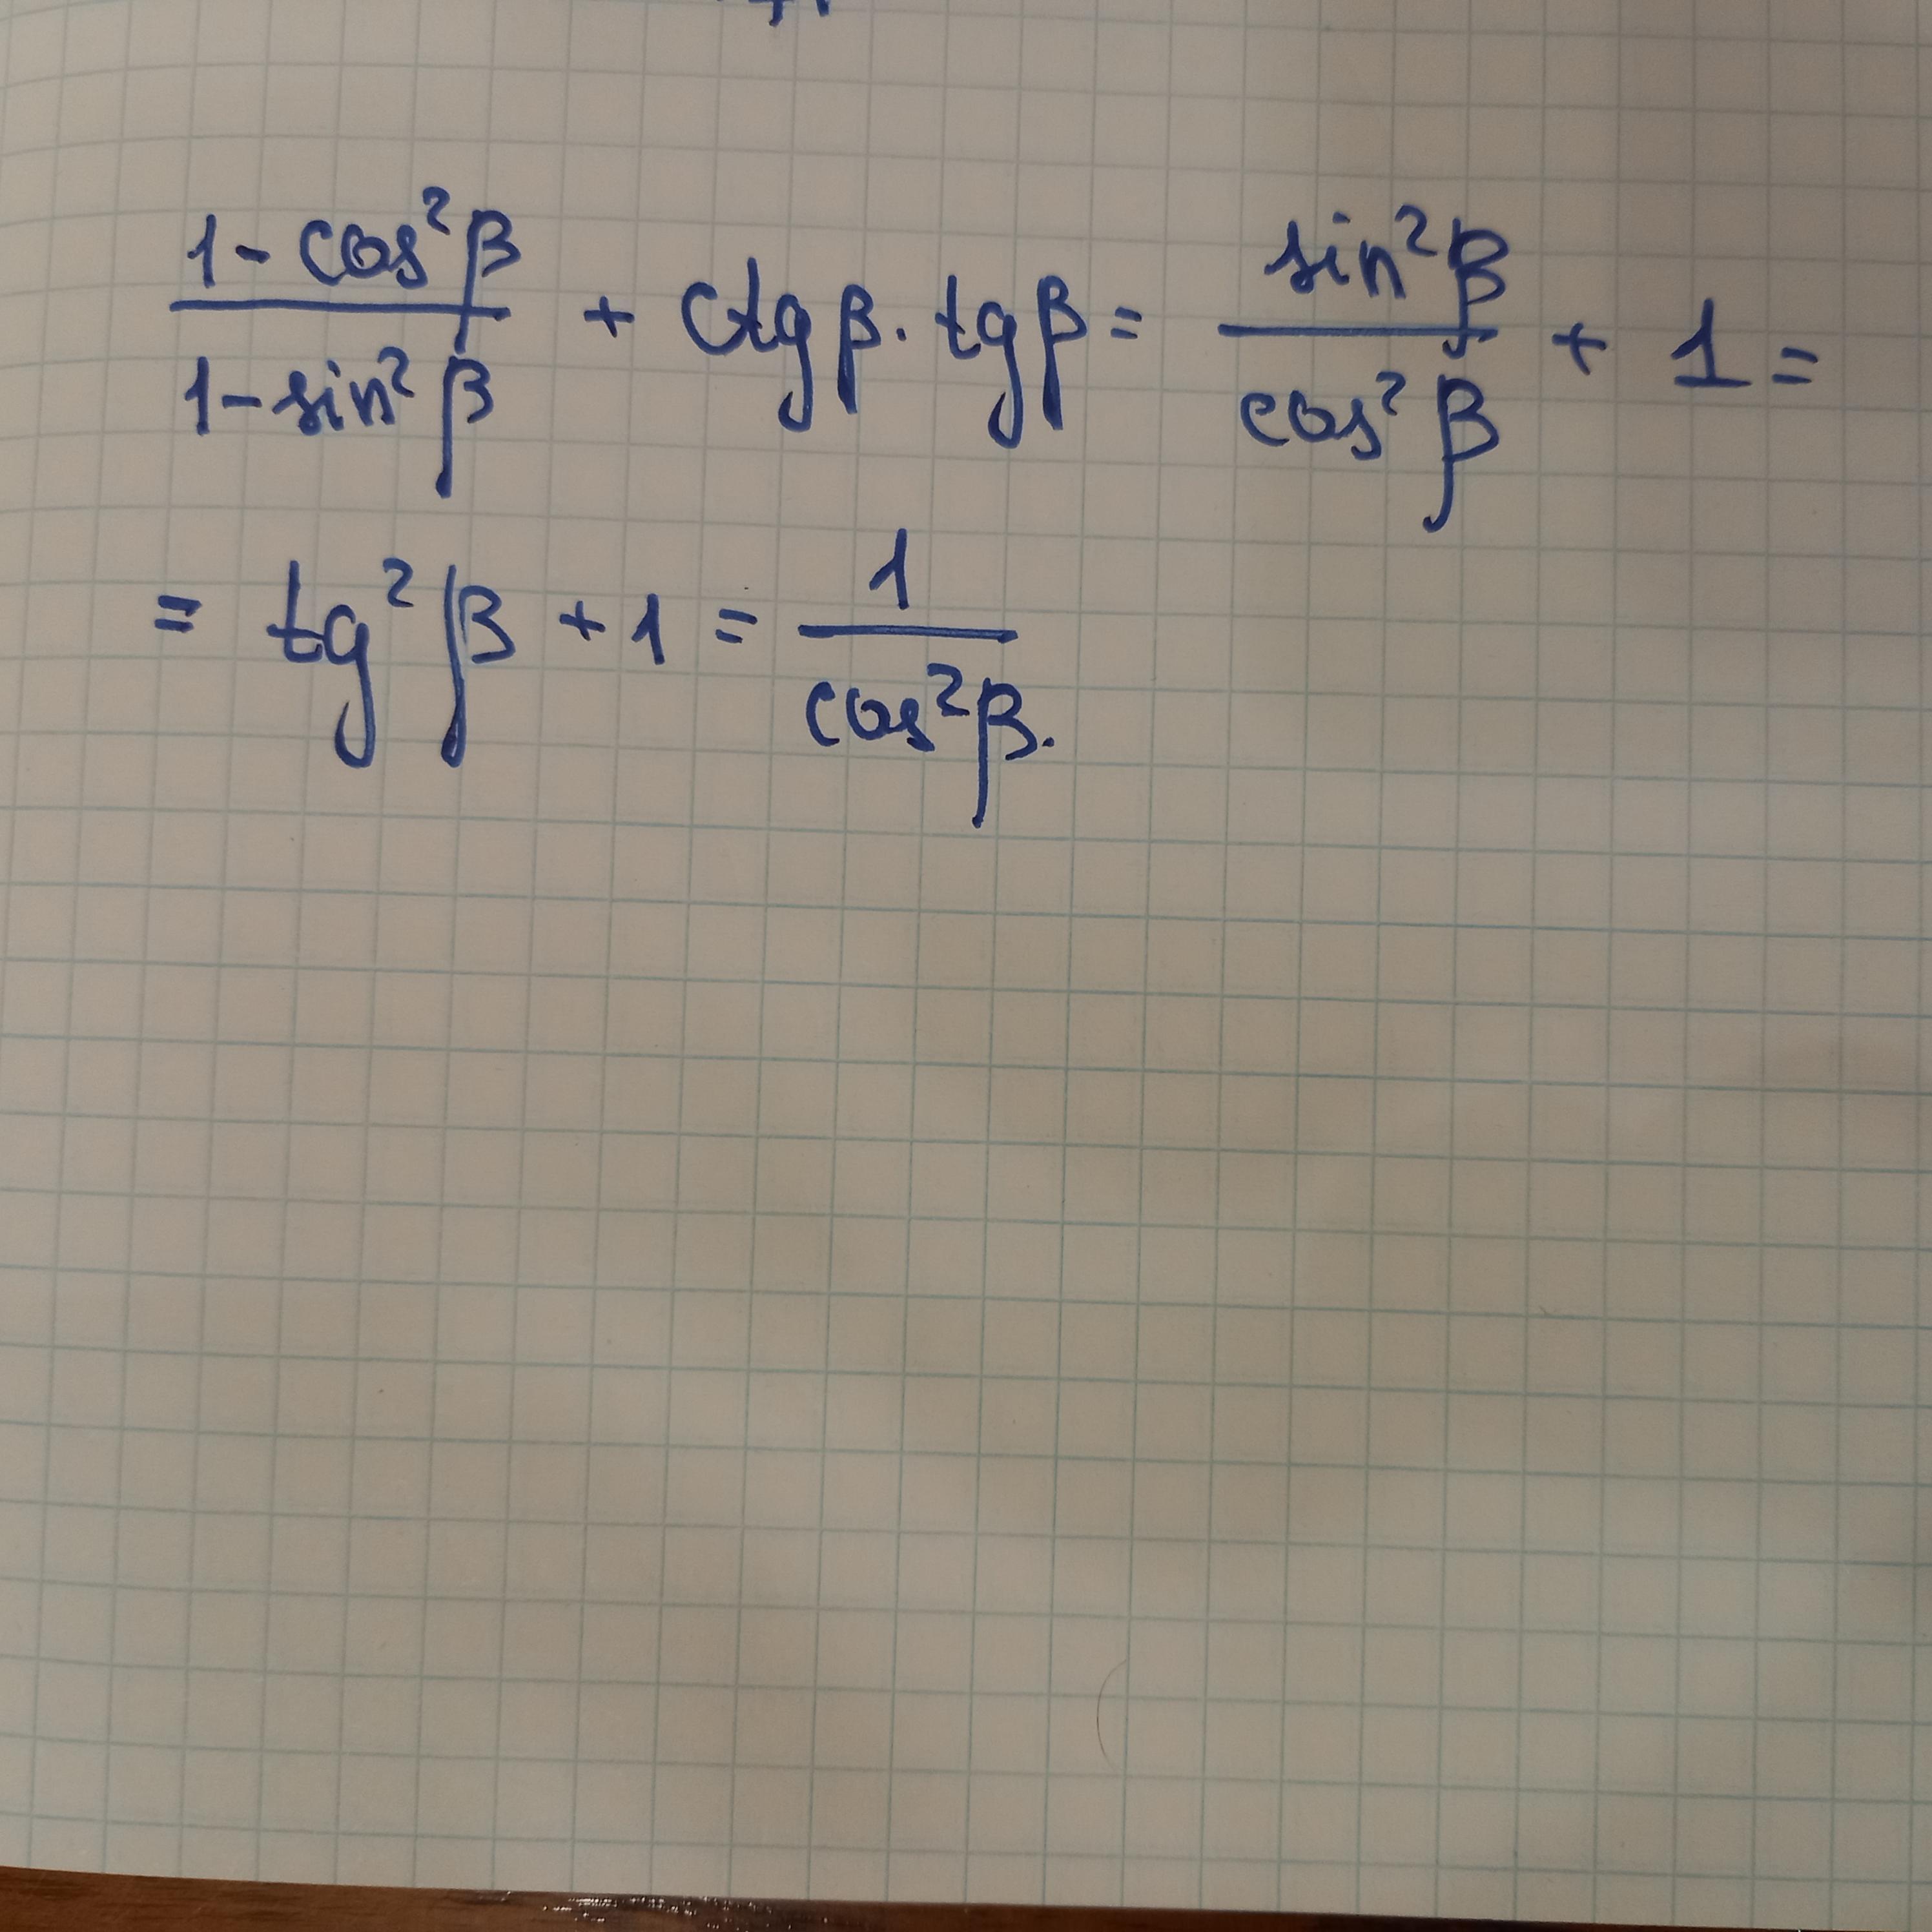 (1 - cos²β)/(1 - sin²β) + ctgβ · tgβ = sin²β/cos²β + 1 =
= tg²β + 1 = 1/cos²β.